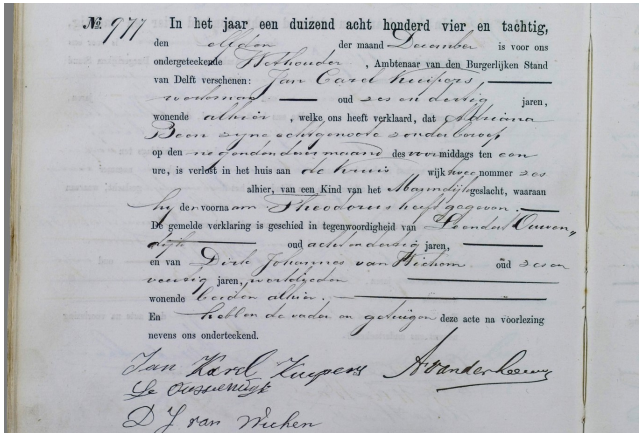 No. 977 In het jaar een duizend acht honderd vier en tachtig,
den elfden der maand December is voor ons
ondergeteekende Wethouder, Ambtenaar van den Burgerlijken Stand
van Delft verschenen: Jan Carel Kuipers,
werkman oud zes en dertig jaren,
wonende alhier, welke ons heeft verklaard, dat Adriana
Boon zijne echtgenoote zonder beroep
op den negenden dezer maand des voormiddags ten een
ure, is verlost in het huis aan de wijk twee nommer zes
alhier, van een Kind van het Mannelijk geslacht, waaraan
hij den voornaam Theodorus heeft gegeven.
De gemelde verklaring is geschied in tegenwoordigheid van Leendert Ouwen„
dijk oud acht en dertig jaren,
en van Dirk Johannes van Wichem oud zes en
veertig jaren,
wonende beiden alhier.
En hebben de vader en getuigen deze acte na voorlezing
nevens ons onderteekend.
Jan Karel Kuipers A van der Leeuw
D J van Wichem